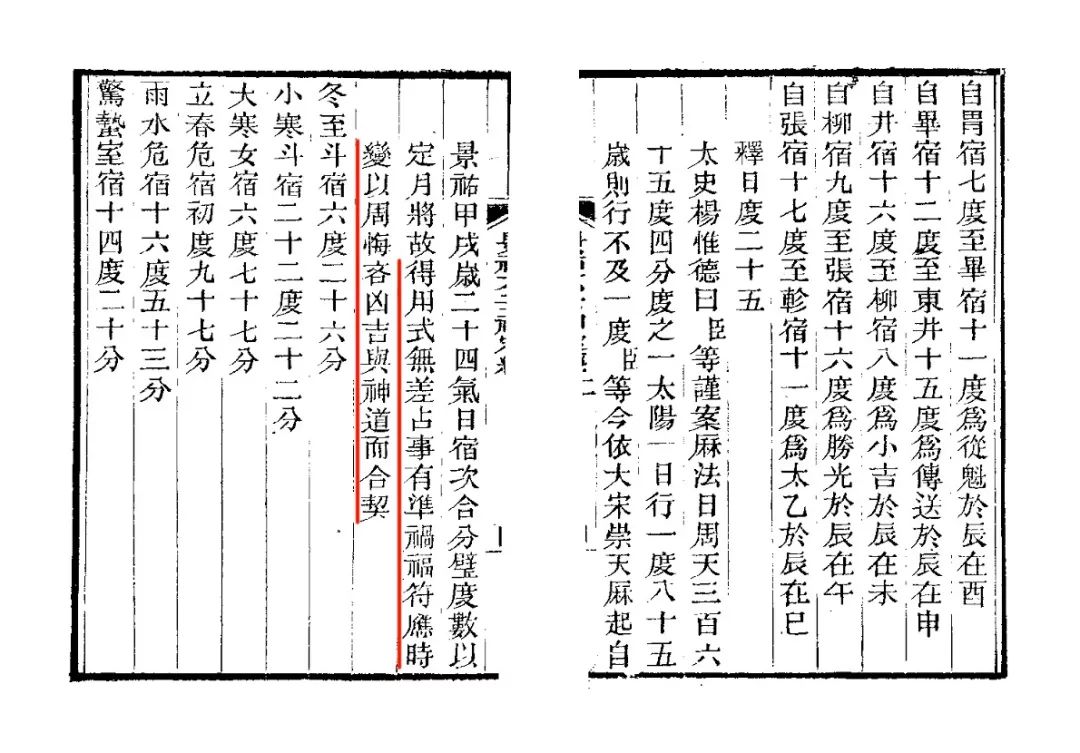 自胃宿七度至畢宿十一度爲從魁於辰在酉
自畢宿十二度至東井十五度爲傳送於辰在申
自井宿十六度至柳宿八度爲小吉於辰在未
自柳宿九度至張宿十六度爲勝光於辰在午
自張宿十七度至軫宿十一度爲太乙於辰在巳
釋日度二十五
太史楊惟德曰臣等謹案厤法日周天三百六
十五度四分度之一太陽一日行一度八十五
歲則行不及一度臣等今依大宋崇天厤起自
景祐甲戌歲二十四氣日宿次合分躔度數以
定月將故得用式無差占事有準禍福符應時
變以周悔吝凶吉與神道而合契
冬至斗宿六度二十六分
小寒斗宿二十二度二十二分
大寒女宿六度七十七分
立春危宿初度九十七分
雨水危宿十六度五十三分
驚蟄室宿十四度二十分